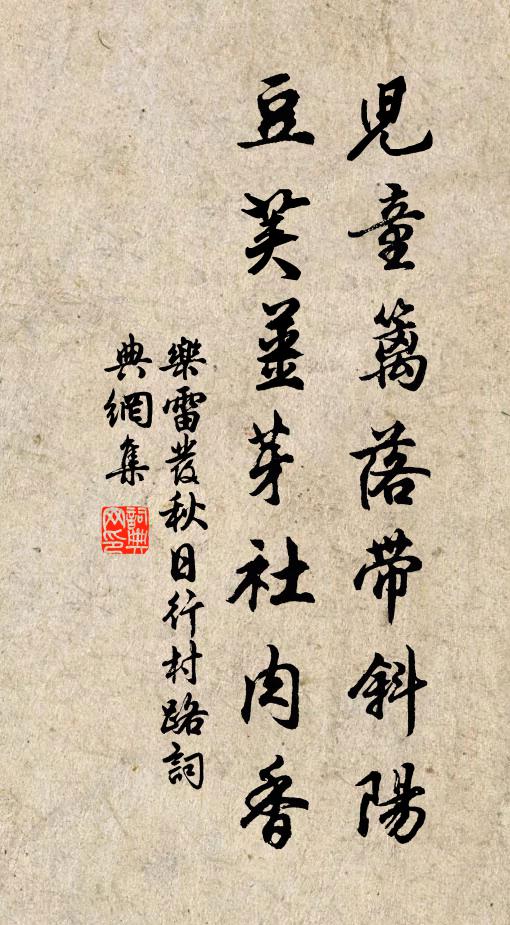 兒童籬落帶斜陽
豆莢薑芽社肉香
樂雷發秋日行村路詞
典網集
詞典网印